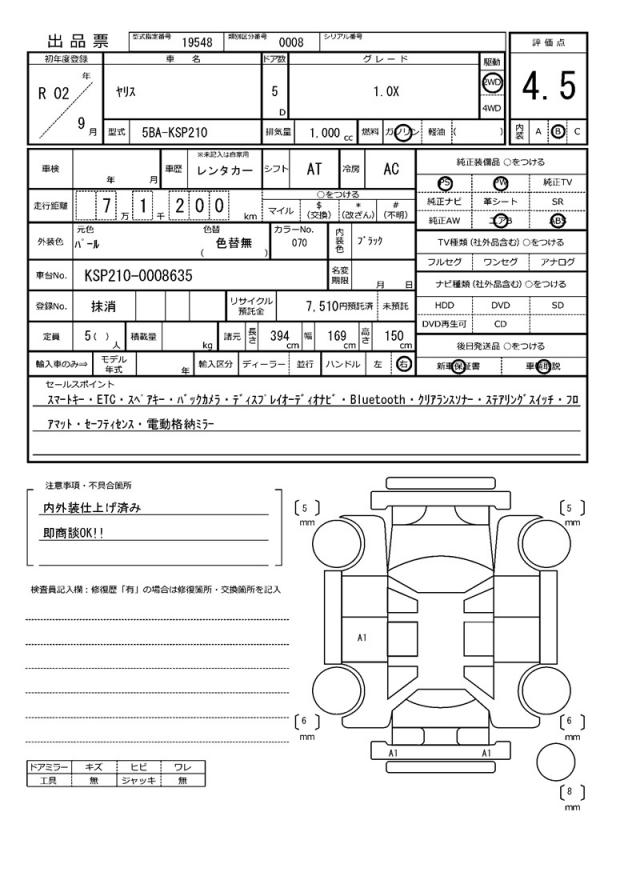 出品票 型式指定番号 19548 類別区分番号 0008 シリアル番号
初年度登録 車名 ドア数 グレード 駆動 評価点
R 02 年 9 月 ヤリス 5 D 1.0X 2WD 4WD 4.5
型式 5BA-KSP210 排気量 1.000 cc 燃料 ガソリン 軽油 ( ) 内装 A B C
車検 年 月 車歴 ※未記入は自家用 レンタカー シフト AT 冷房 AC 純正装備品 ○をつける
PS PW 純正TV
走行距離 7 万 1 千 2 0 0 km ○をつける
マイル $ (交換) * (改ざん) # (不明)
純正ナビ 革シート SR
純正AW エアB ABS
外装色 元色 パール 色替 色替無 ( ) カラーNo. 070 内装色 ブラック
TV種類(社外品含む) ○をつける
フルセグ ワンセグ アナログ
車台No. KSP210-0008635 名変期限 月 日
ナビ種類(社外品含む) ○をつける
登録No. 抹消 リサイクル預託金 7,510円預託済 未預託
HDD DVD SD
DVD再生可 CD
定員 5( ) 人 積載量 kg 諸元 長さ 394 cm 幅 169 cm 高さ 150 cm
後日発送品 ○をつける
輸入車のみ⇒ モデル年式 年 輸入区分 ディーラー 並行 ハンドル 左 右
新車保証書 車輌取説
セールスポイント
スマートキー・ETC・スペアキー・バックカメラ・ディスプレイオーディオナビ・Bluetooth・クリアランスソナー・ステアリングスイッチ・フロ
アマット・セーフティセンス・電動格納ミラー
注意事項・不具合箇所
内外装仕上げ済み
即商談OK!!
検査員記入欄:修復歴「有」の場合は修復箇所・交換箇所を記入
[5] mm [5] mm
A1
[6] mm [6] mm
A1 A1
[8] mm
ドアミラー キズ ヒビ ワレ
工具 無 ジャッキ 無